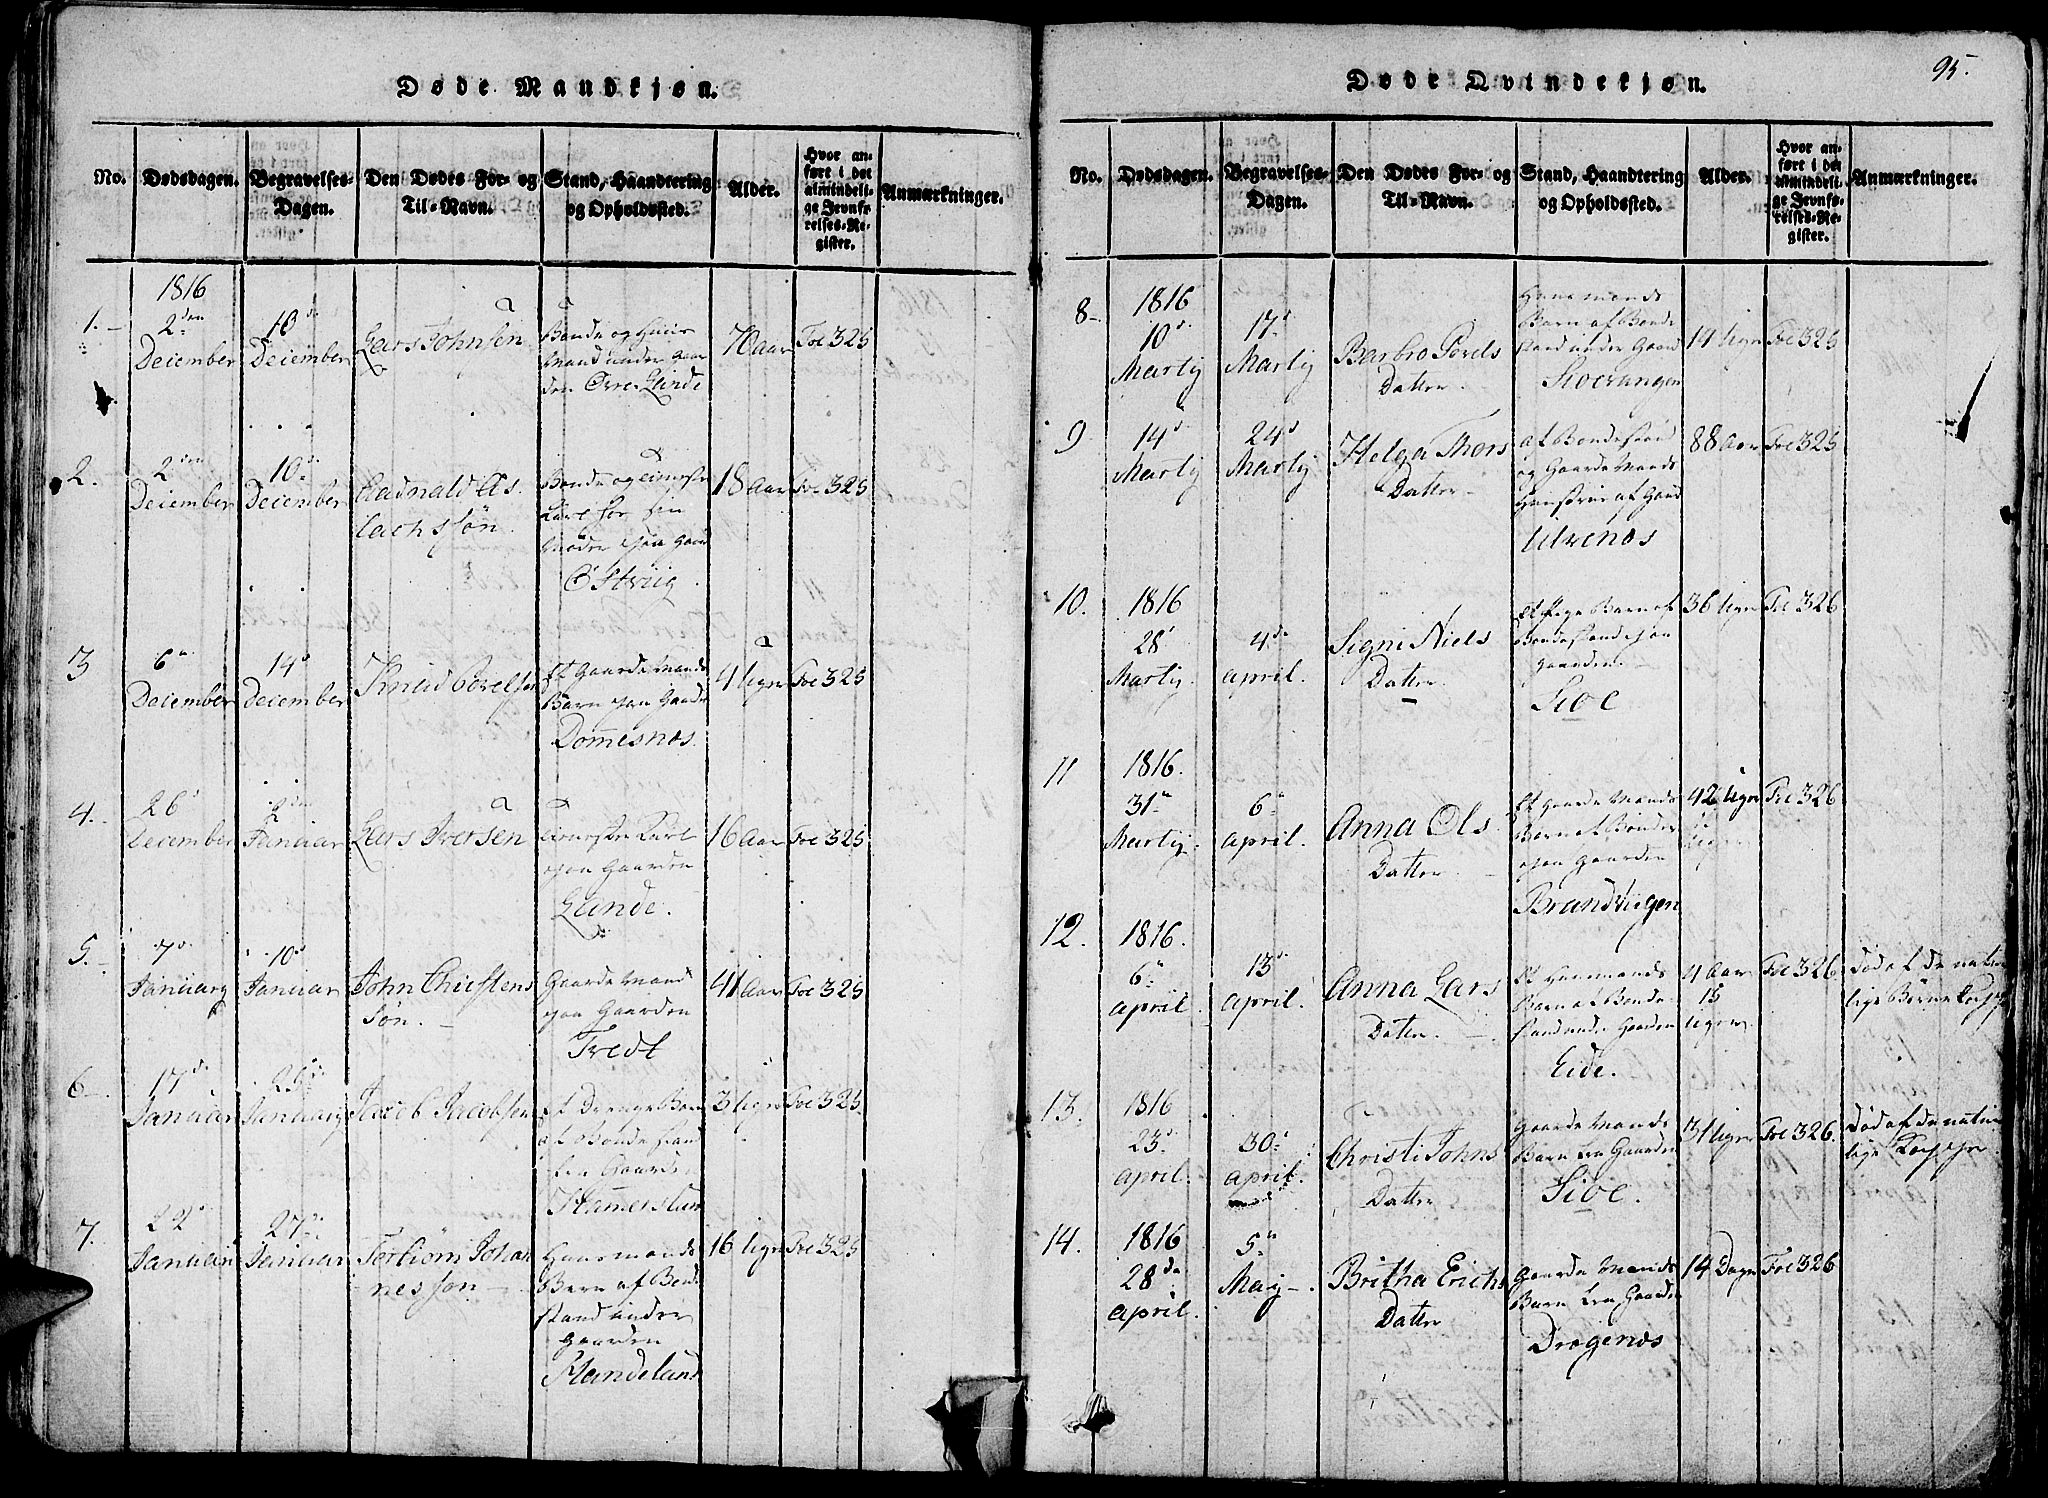 Døde Mandkjøn.
No. Dødsdagen. Begravelses-Dagen. Den Dødes For- og Til-Navn. Stand, Haandtering og Opholdssted. Alder. Hvor anført i det almindelige Jevnførelses-Register. Anmærkninger.
1816
1. 2den December 10de December Lars Johnsen
Bonde og Huus
Mand under Gaar
den Øvre Lunde
70 aar Foe 325
2. 2den December 10de December
søn.
Bonde og
Karl for sin
Moder paa Gaard
Østviig
18 Aar Foe 325
3 6te December 14de December Knud Povelsen
Et Gaarde Mands
Barn paa Gaarde
Domesnæs.
4 Uger Foe 325
4. 26d December 2den Januar Lars Iversen
Karl
paa Gaarden
Lunde.
16 Aar Foe 325
5. 7d Januarij 10d Januar John Christens
søn.
Gaarde Mand
paa Gaarden
Tredt
41 Aar Foe 325
6. 17de Januar Januarij Jacob Jacobsen
Et Drenge Barn
af Bondestand
fra Gaarden
Hamersland
3 Uger Foe 325
7. 22d Januari 27de Januar Johan
nes søn
Huusmands
Barn af Bonde
stand under
Gaarden
Handeland
16 Uger Foe 325
95.
Døde Qvindekjøn.
No. Dødsdagen. Begravelses-Dagen. Den Dødes For- og Til-Navn. Stand, Haandtering og Opholdssted. Alder. Hvor anført i det almindelige Jevnførelses-Register. Anmærkninger.
8 1816
10d Martij 17d Martij Barbro Povels
Datter
Huusmands
Barn af Bonde
stand under Gaard
14 Uger Foe 325
9 14d Martij 24d Martij Helga Thors
Datter
af Bondestand
og Gaarde Mands
Hustrue af Gaard
Ulvenæs
88 Aar Foe 325
10. 1816
28d Martij. 4de April. Signi Niels
Datter
Et Pige Barn af
Bondestand paa
gaarden
Sioe
36 Uger Foe 326
11 1816.
31te Martij 6te April. Anna Ols
Datter
Et Gaarde Mands
Barn af Bonder
paa Gaarden
Brandviigen
42 Uger Foe 326
12. 1816.
6te April. 13d April. Anna Lars
Datter.
Et Huusmands
Barn af Bonde
stand under Gaarden
Eide.
4 Aar
15
Uger
Foe 326.
Død af de natur
lige Børne Kopper
13. 1816
23d April. 30d April. Christi Johns
Datter
Gaarde Mands
Barn fra Gaarden
Sioe.
31 Uger Foe 326.
Død af de natur
lige Kopper
14. 1816
28de April. 5te Maij Britha Erichs
Datter
Gaarde Mands
Barn fra Gaarden
Dragenæs
14 Dage Foe 326